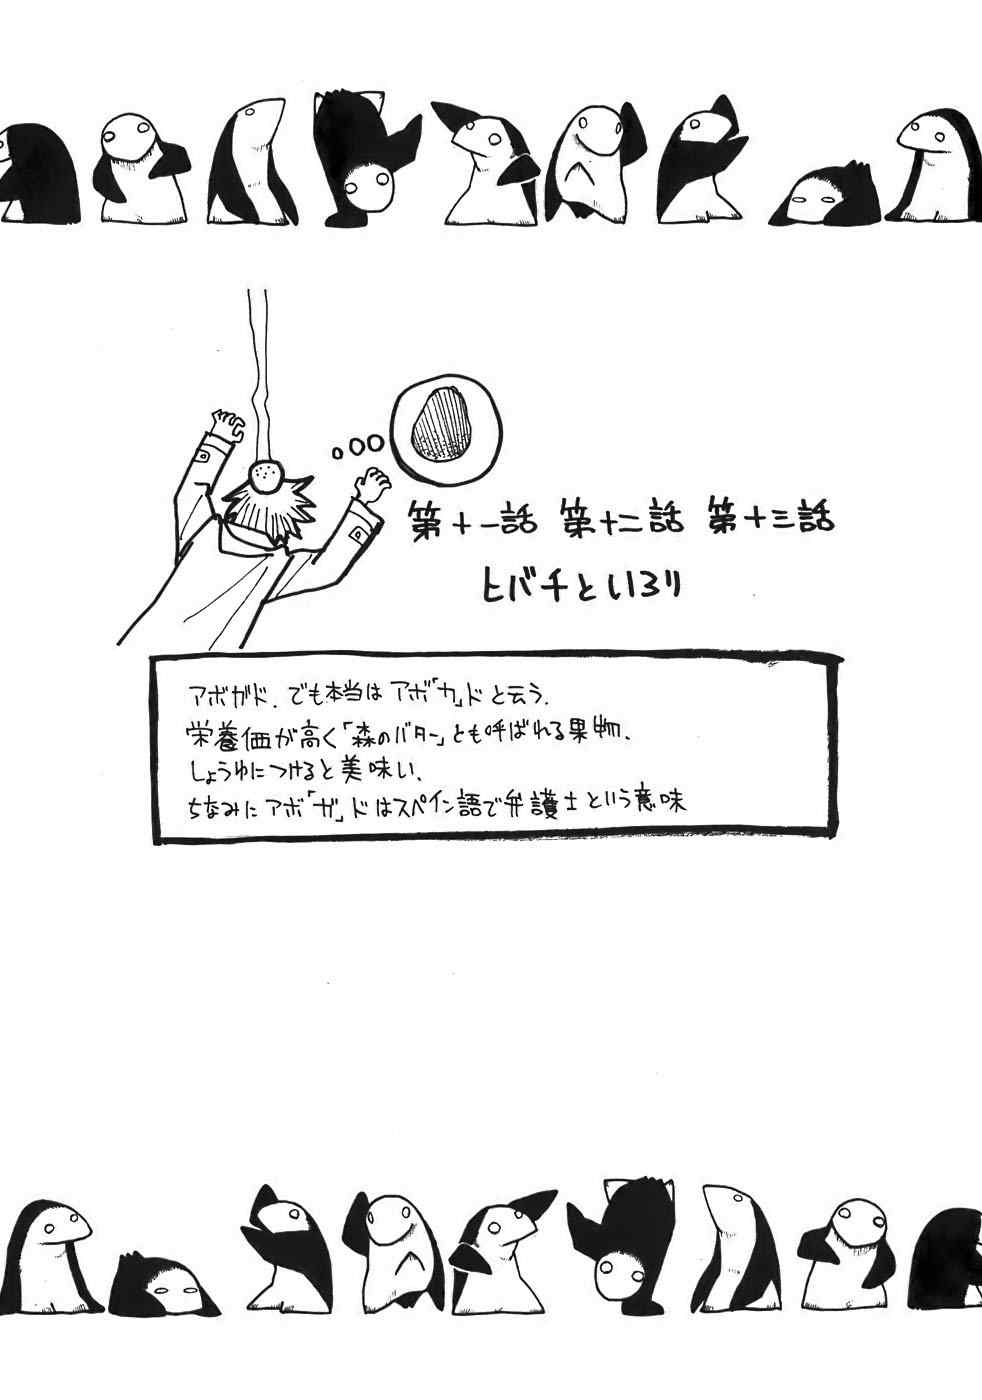 第十一話 第十二話 第十三話
ヒバチといろり
アボガド、でも本当はアボ「カ」ドと云う。
栄養価が高く「森のバター」とも呼ばれる果物、
しょうゆにつけると美味い、
ちなみにアボ「ガ」ドはスペイン語で弁護士という意味